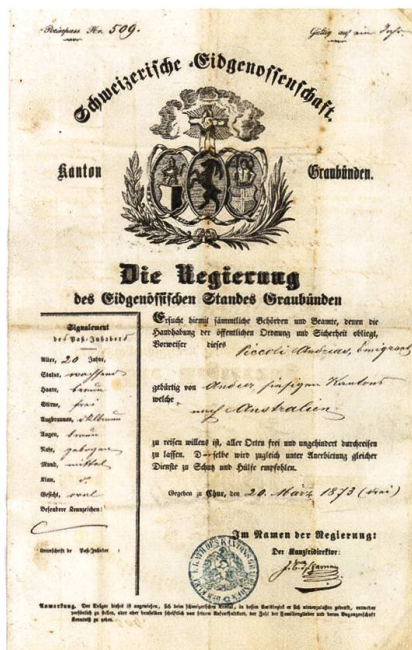 Reisepass Nr. 509.
Gültig auf ein Jahr
Schweizerische Eidgenossenschaft.
Kanton Graubünden.
Die Regierung
des Eidgenössischen Standes Graubünden
Signalement
des Paß-Inhabers
Alter, 20 Jahre,
Statur, wachsend
Haare, braun
Stirne, frei
Augbraunen,
Augen, braun
Nase, gebogen
Mund, mittel
Kinn,
Gesicht, oval
Besondere Kennzeichen:
Unterschrift des Paß-Inhabers
Ersucht hiermit sämmtliche Behörden und Beamte, denen die
Handhabung der öffentlichen Ordnung und Sicherheit obliegt,
Vorweiser dieses
Piccoli Andreas, Emigrant
gebürtig von Andeer hiesigen Kantons
welche
nach Australien
zu reisen willens ist, aller Orten frei und ungehindert durchreisen
zu lassen. Derselbe wird zugleich unter Anerbietung gleicher
Dienste zu Schutz und Hülfe empfohlen.
Gegeben zu Chur, den 20. März 1873 (drei)
Im Namen der Regierung:
Der Kanzleidirektor:
Anmerkung. Der Träger dieses ist angewiesen, sich beim schweizerischen Konsul, in dessen